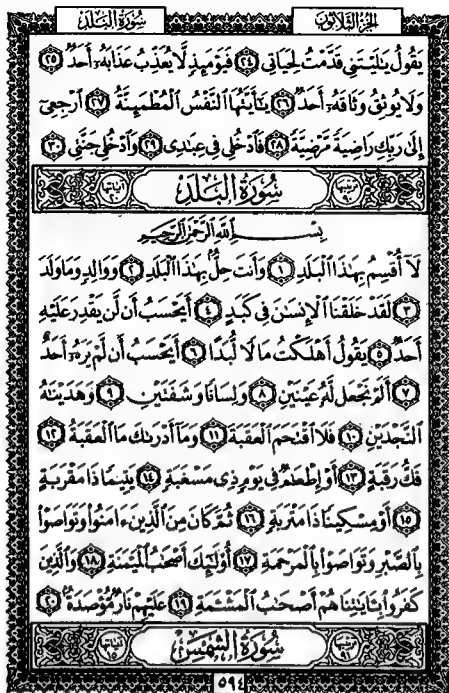 سُورَةُ البَلَد
الجُزْءُ الثَّلَاثُونَ
يَقُولُ يَٰلَيْتَنِي قَدَّمْتُ لِحَيَاتِي ٢٤ فَيَوْمَئِذٍ لَّا يُعَذِّبُ عَذَابَهُۥٓ أَحَدٌ ٢٥
وَلَا يُوثِقُ وَثَاقَهُۥٓ أَحَدٌ ٢٦ يَٰٓأَيَّتُهَا ٱلنَّفْسُ ٱلْمُطْمَئِنَّةُ ٢٧ ٱرْجِعِىٓ
إِلَىٰ رَبِّكِ رَاضِيَةً مَّرْضِيَّةً ٢٨ فَٱدْخُلِى فِى عِبَٰدِى ٢٩ وَٱدْخُلِى جَنَّتِى ٣٠
ترتيبها ٩٠ سُورَةُ البَلَد آياتها ٢٠
بِسْمِ ٱللَّهِ ٱلرَّحْمَٰنِ ٱلرَّحِيمِ
لَآ أُقْسِمُ بِهَٰذَا ٱلْبَلَدِ ١ وَأَنتَ حِلٌّۢ بِهَٰذَا ٱلْبَلَدِ ٢ وَوَالِدٍ وَمَا وَلَدَ
٣ لَقَدْ خَلَقْنَا ٱلْإِنسَٰنَ فِى كَبَدٍ ٤ أَيَحْسَبُ أَن لَّن يَقْدِرَ عَلَيْهِ
أَحَدٌ ٥ يَقُولُ أَهْلَكْتُ مَالًا لُّبَدًا ٦ أَيَحْسَبُ أَن لَّمْ يَرَهُۥٓ أَحَدٌ
٧ أَلَمْ نَجْعَل لَّهُۥ عَيْنَيْنِ ٨ وَلِسَانًا وَشَفَتَيْنِ ٩ وَهَدَيْنَٰهُ
ٱلنَّجْدَيْنِ ١٠ فَلَا ٱقْتَحَمَ ٱلْعَقَبَةَ ١١ وَمَآ أَدْرَىٰكَ مَا ٱلْعَقَبَةُ ١٢
فَكُّ رَقَبَةٍ ١٣ أَوْ إِطْعَٰمٌ فِى يَوْمٍ ذِى مَسْغَبَةٍ ١٤ يَتِيمًا ذَا مَقْرَبَةٍ
١٥ أَوْ مِسْكِينًا ذَا مَتْرَبَةٍ ١٦ ثُمَّ كَانَ مِنَ ٱلَّذِينَ ءَامَنُوا۟ وَتَوَاصَوْا۟
بِٱلصَّبْرِ وَتَوَاصَوْا۟ بِٱلْمَرْحَمَةِ ١٧ أُو۟لَٰٓئِكَ أَصْحَٰبُ ٱلْمَيْمَنَةِ ١٨ وَٱلَّذِينَ
كَفَرُوا۟ بِـَٔايَٰتِنَا هُمْ أَصْحَٰبُ ٱلْمَشْـَٔمَةِ ١٩ عَلَيْهِمْ نَارٌ مُّؤْصَدَةٌۢ ٢٠
ترتيبها ٩١ سُورَةُ الشَّمْس آياتها ١٥
٥٩٤